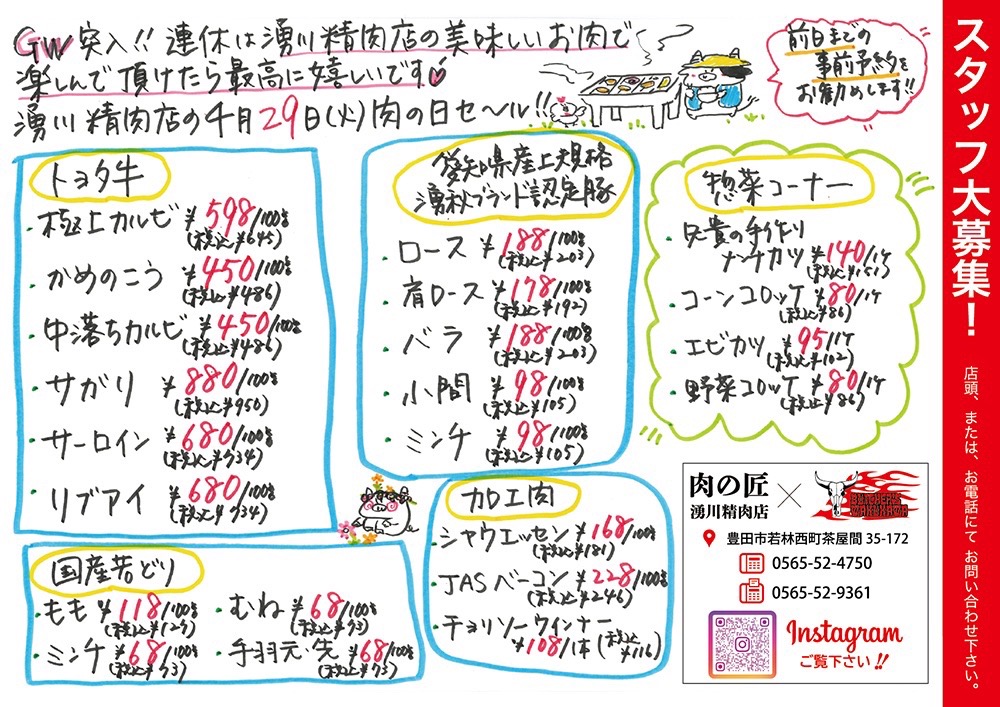 GW突入!! 連休は湧川精肉店の美味しいお肉で
楽しんで頂けたら最高に嬉しいです
湧川精肉店の4月29日(火)肉の日セ〜ル!!
前日までの
事前予約を
お勧めします!!
トヨタ牛
・極上カルビ ¥598/100g
(税込¥645)
・かめのこう ¥450/100g
(税込¥486)
・中落ちカルビ ¥450/100g
(税込¥486)
・サガリ ¥880/100g
(税込¥950)
・サーロイン ¥680/100g
(税込¥734)
・リブアイ ¥680/100g
(税込¥734)
愛知県産上規格
湧秋ブランド認定豚
・ロース ¥188/100g
(税込¥203)
・肩ロース ¥178/100g
(税込¥192)
・バラ ¥188/100g
(税込¥203)
・小間 ¥98/100g
(税込¥105)
・ミンチ ¥98/100g
(税込¥105)
惣菜コーナー
・兄貴の手作り
メンチカツ ¥140/1ケ
(税込¥151)
・コーンコロッケ ¥80/1ケ
(税込¥86)
・エビカツ ¥95/1ケ
(税込¥102)
・野菜コロッケ ¥80/1ケ
(税込¥86)
国産若どり
・もも ¥118/100g
(税込¥127)
・むね ¥68/100g
(税込¥73)
・ミンチ ¥68/100g
(税込¥73)
・手羽元・先 ¥68/100g
(税込¥73)
加工肉
・シャウエッセン ¥168/100g
(税込¥181)
・JASベーコン ¥228/100g
(税込¥246)
・チョリソーウインナー
¥108/1本(税込¥116)
肉の匠
湧川精肉店
×
BUTCHER'S
WAKUKAWA
豊田市若林西町茶屋間 35-172
0565-52-4750
0565-52-9361
Instagram
ご覧下さい!!
スタッフ大募集！
店頭、または、お電話にて お問い合わせ下さい。